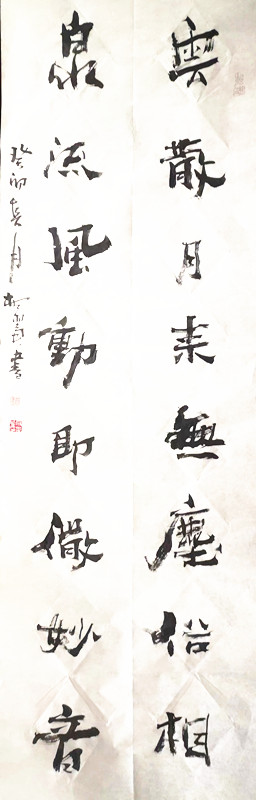 雲散月來無塵俗相
泉流風動即微妙音
癸卯 月 書